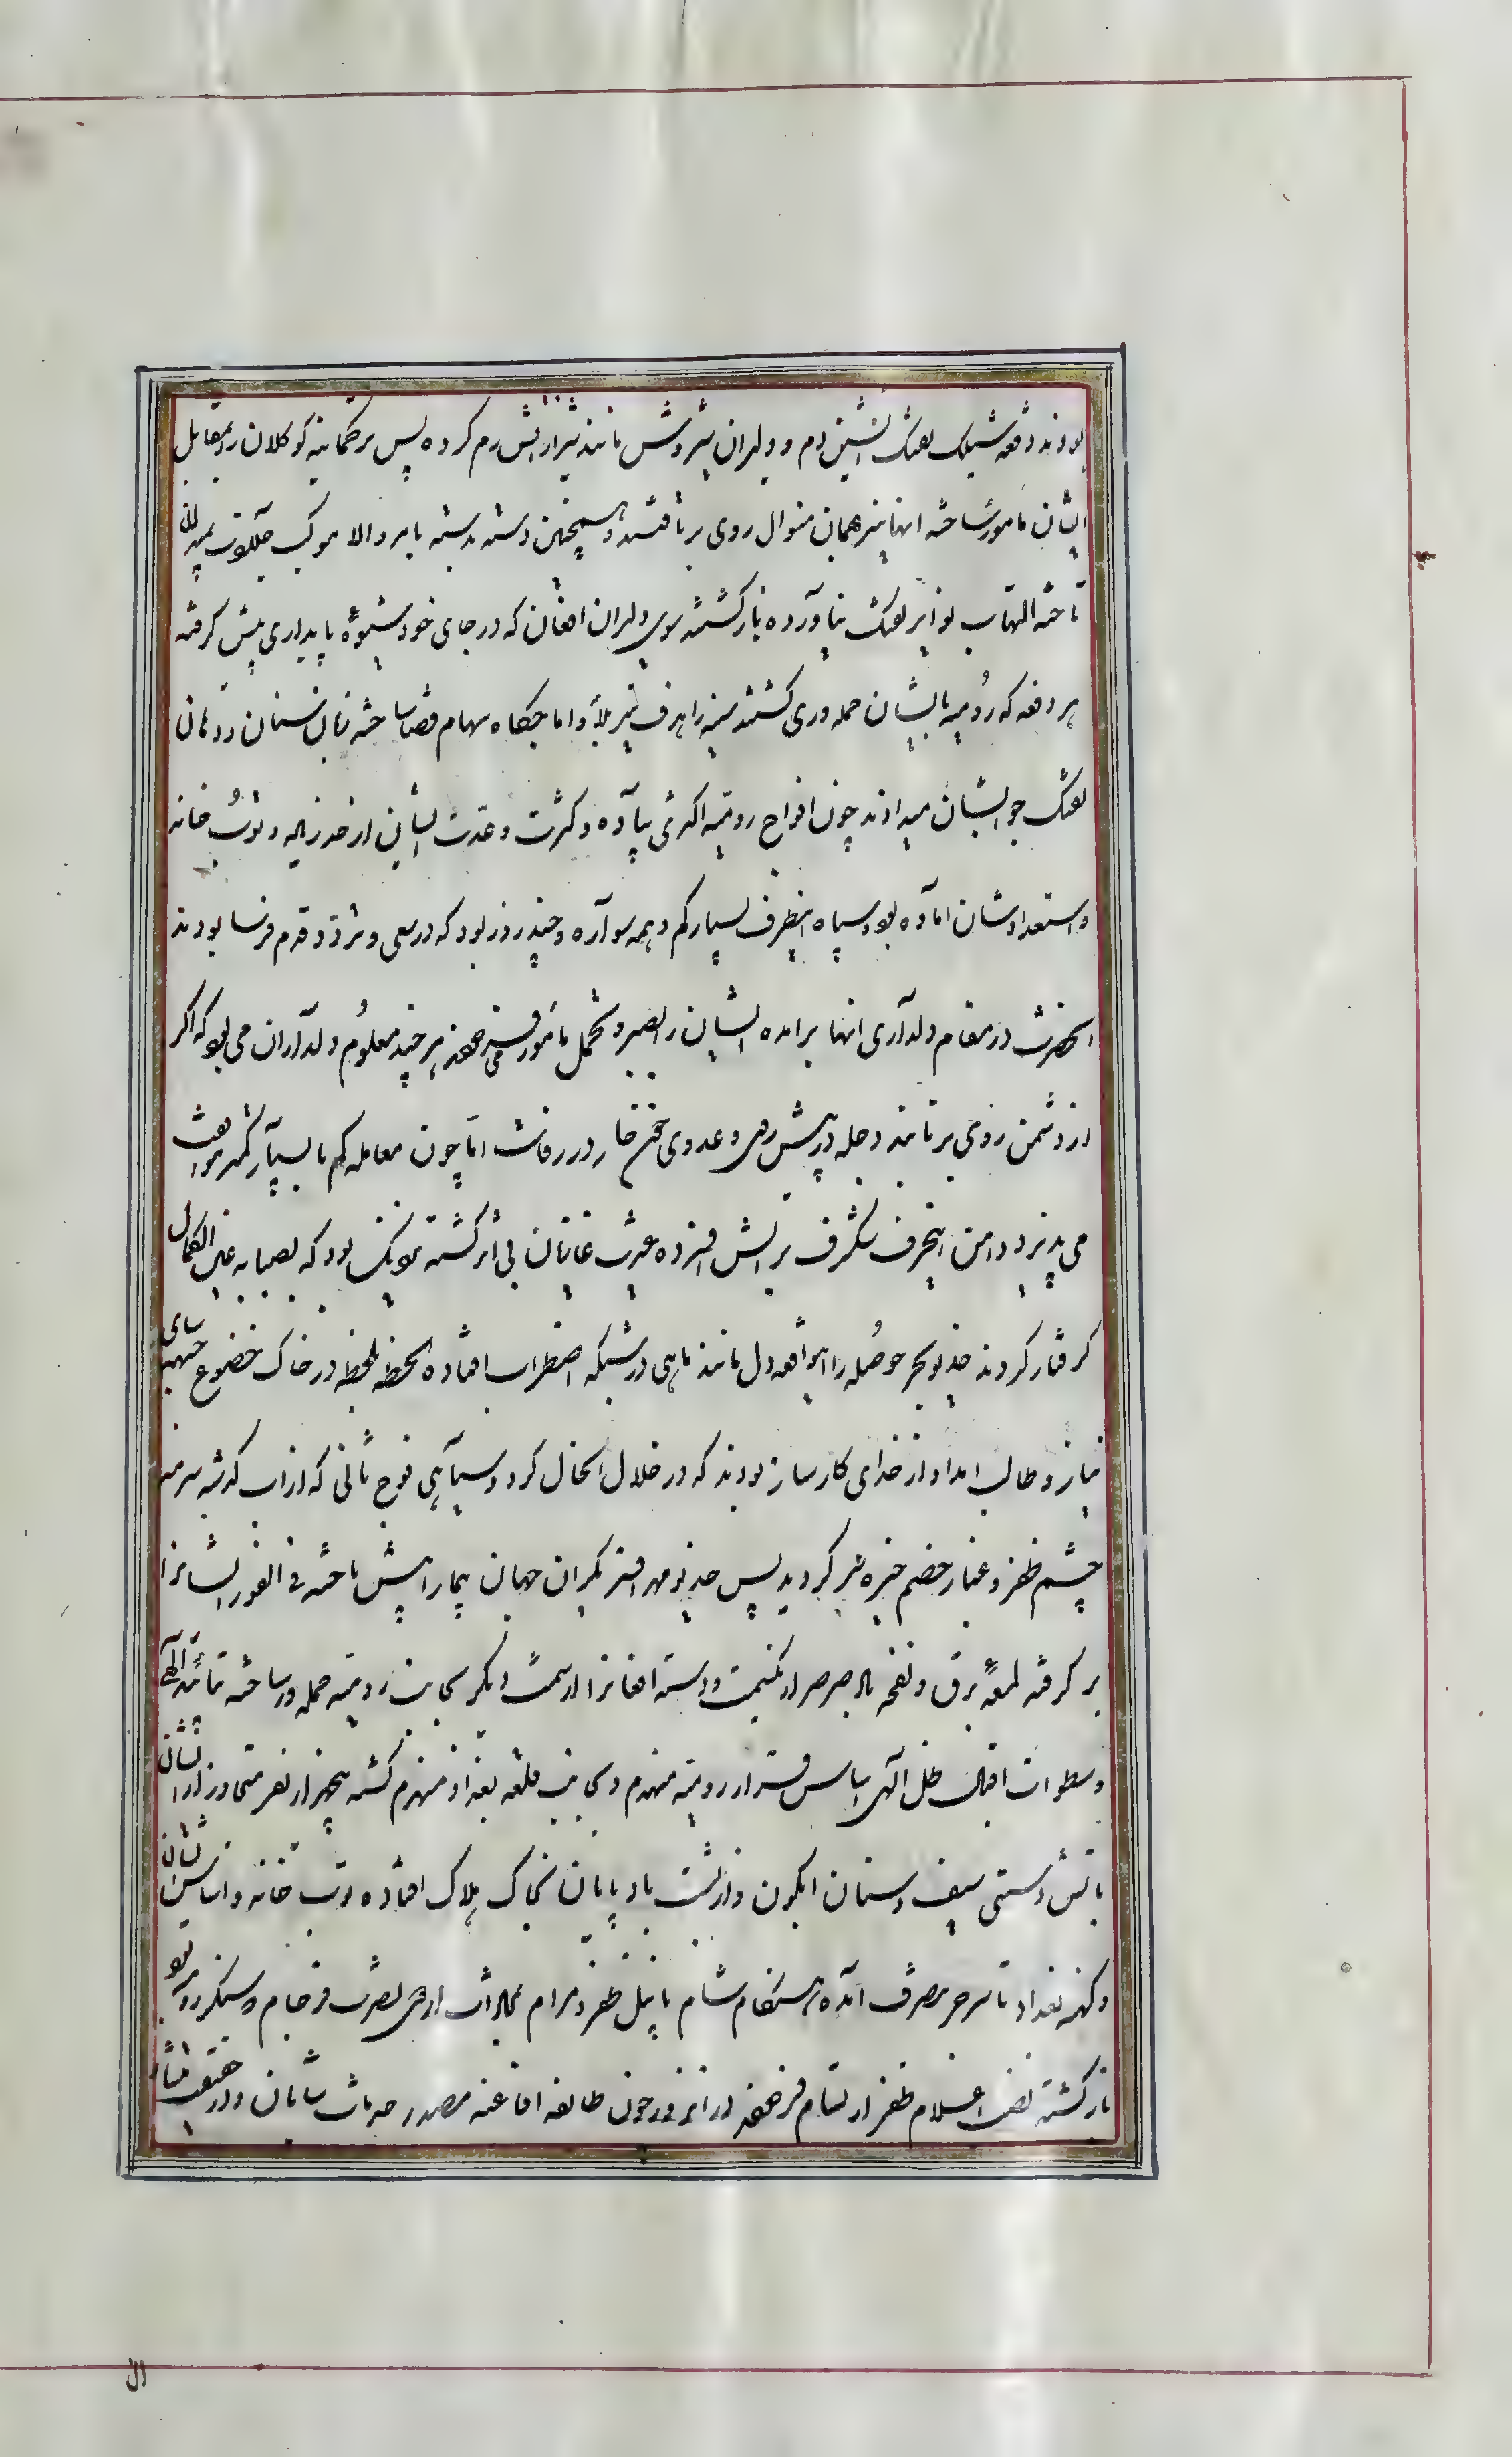 بودند دفعه شلیک تفنک آتشین دم و دلیران شیروش مانند شیر از آتش رم کرده پس ترکمانیه کوکلان را بمقابل
ایشان مامور ساخته آنها نیز همان منوال روی برتافتند و همچنین دسته بدسته بامر والا موکب جلالت بمیدان
تاخته التهاب نوایر تفنک نیاورده بازکشتند سوی دلیران افغان که در جای خود شیوهٔ پایداری پیش کرفته
هر دفعه که رومیه بایشان حمله وری کشتند سینه را هدف تیر بلا و اماجکاه سهام قضا ساخته زبان سنان و دهان
تفنک جواب ایشان میدادند چون افواج رومیه اکثری پیاده و کثرت و عدت ایشان از حد زیاده و توپ خانه
و استعدادشان آماده بود و سپاه اینطرف بسیار کم و همه سواره و چند روز بود که در سعی و تردد قدم فرسا بودند
آنحضرت در مقام دلداری آنها برآمده ایشان را بصبر و تحمل مامور می فرمودند هر چند معلوم دلداران می بود که اکر
از دشمن روی برتابند دجله در پیش روی و عدوی خنجر کذار در قفاست اما چون معامله کم با بسیار کمتر موافقت
می پذیرد دامن اینحرف شکرف بر آتش افسرده غیرت غازیان بی اثر کشته نزدیک بود که بصدمه عین الکمال
کرفتار کردند خدیو بحر حوصله را از اینواقعه دل مانند ماهی در شبکه اضطراب افتاده لحظه بلحظه در خاک خضوع جبهه سای
نیاز و طالب امداد از خدای کارساز بودند که در خلال آنحال کرد و سیاهی فوج ثانی که از آب کذشته سرمه
چشم ظفر و غبار خصم خیره سر کردید پس خدیو مهر افسر یکران جهان پیما را پیش تاخته فی الفور ایشانرا
بر کرفته لمعهٔ برق و نفخه باد صرصر از یکسمت و دسته افغانرا از سمت دیکر بجانب رومیه حمله ور ساخته بتائید الهی
و سطوات اقبال ظل الهی اساس قرار رومیه منهدم و بجانب قلعه بغداد منهزم کشته پنجهزار نفر متجاوز از ایشان
باتش دستی سیف و سنان آبکون و از پشت بادپایان بخاک هلاک افتاده توپ خانه و اساس ایشان
و کهنه بغداد تا سر جسر بتصرف آمده هنکام شام با نیل ظفر و مرام بمحلات اردوی نصرت فرجام و سنکر رومیه بود
بازکشته نصب اعلام ظفر ارتسام فرمودند در آنروز چون طایفه افاغنه مصدر خدمات شایان و در حقیقت منشاء